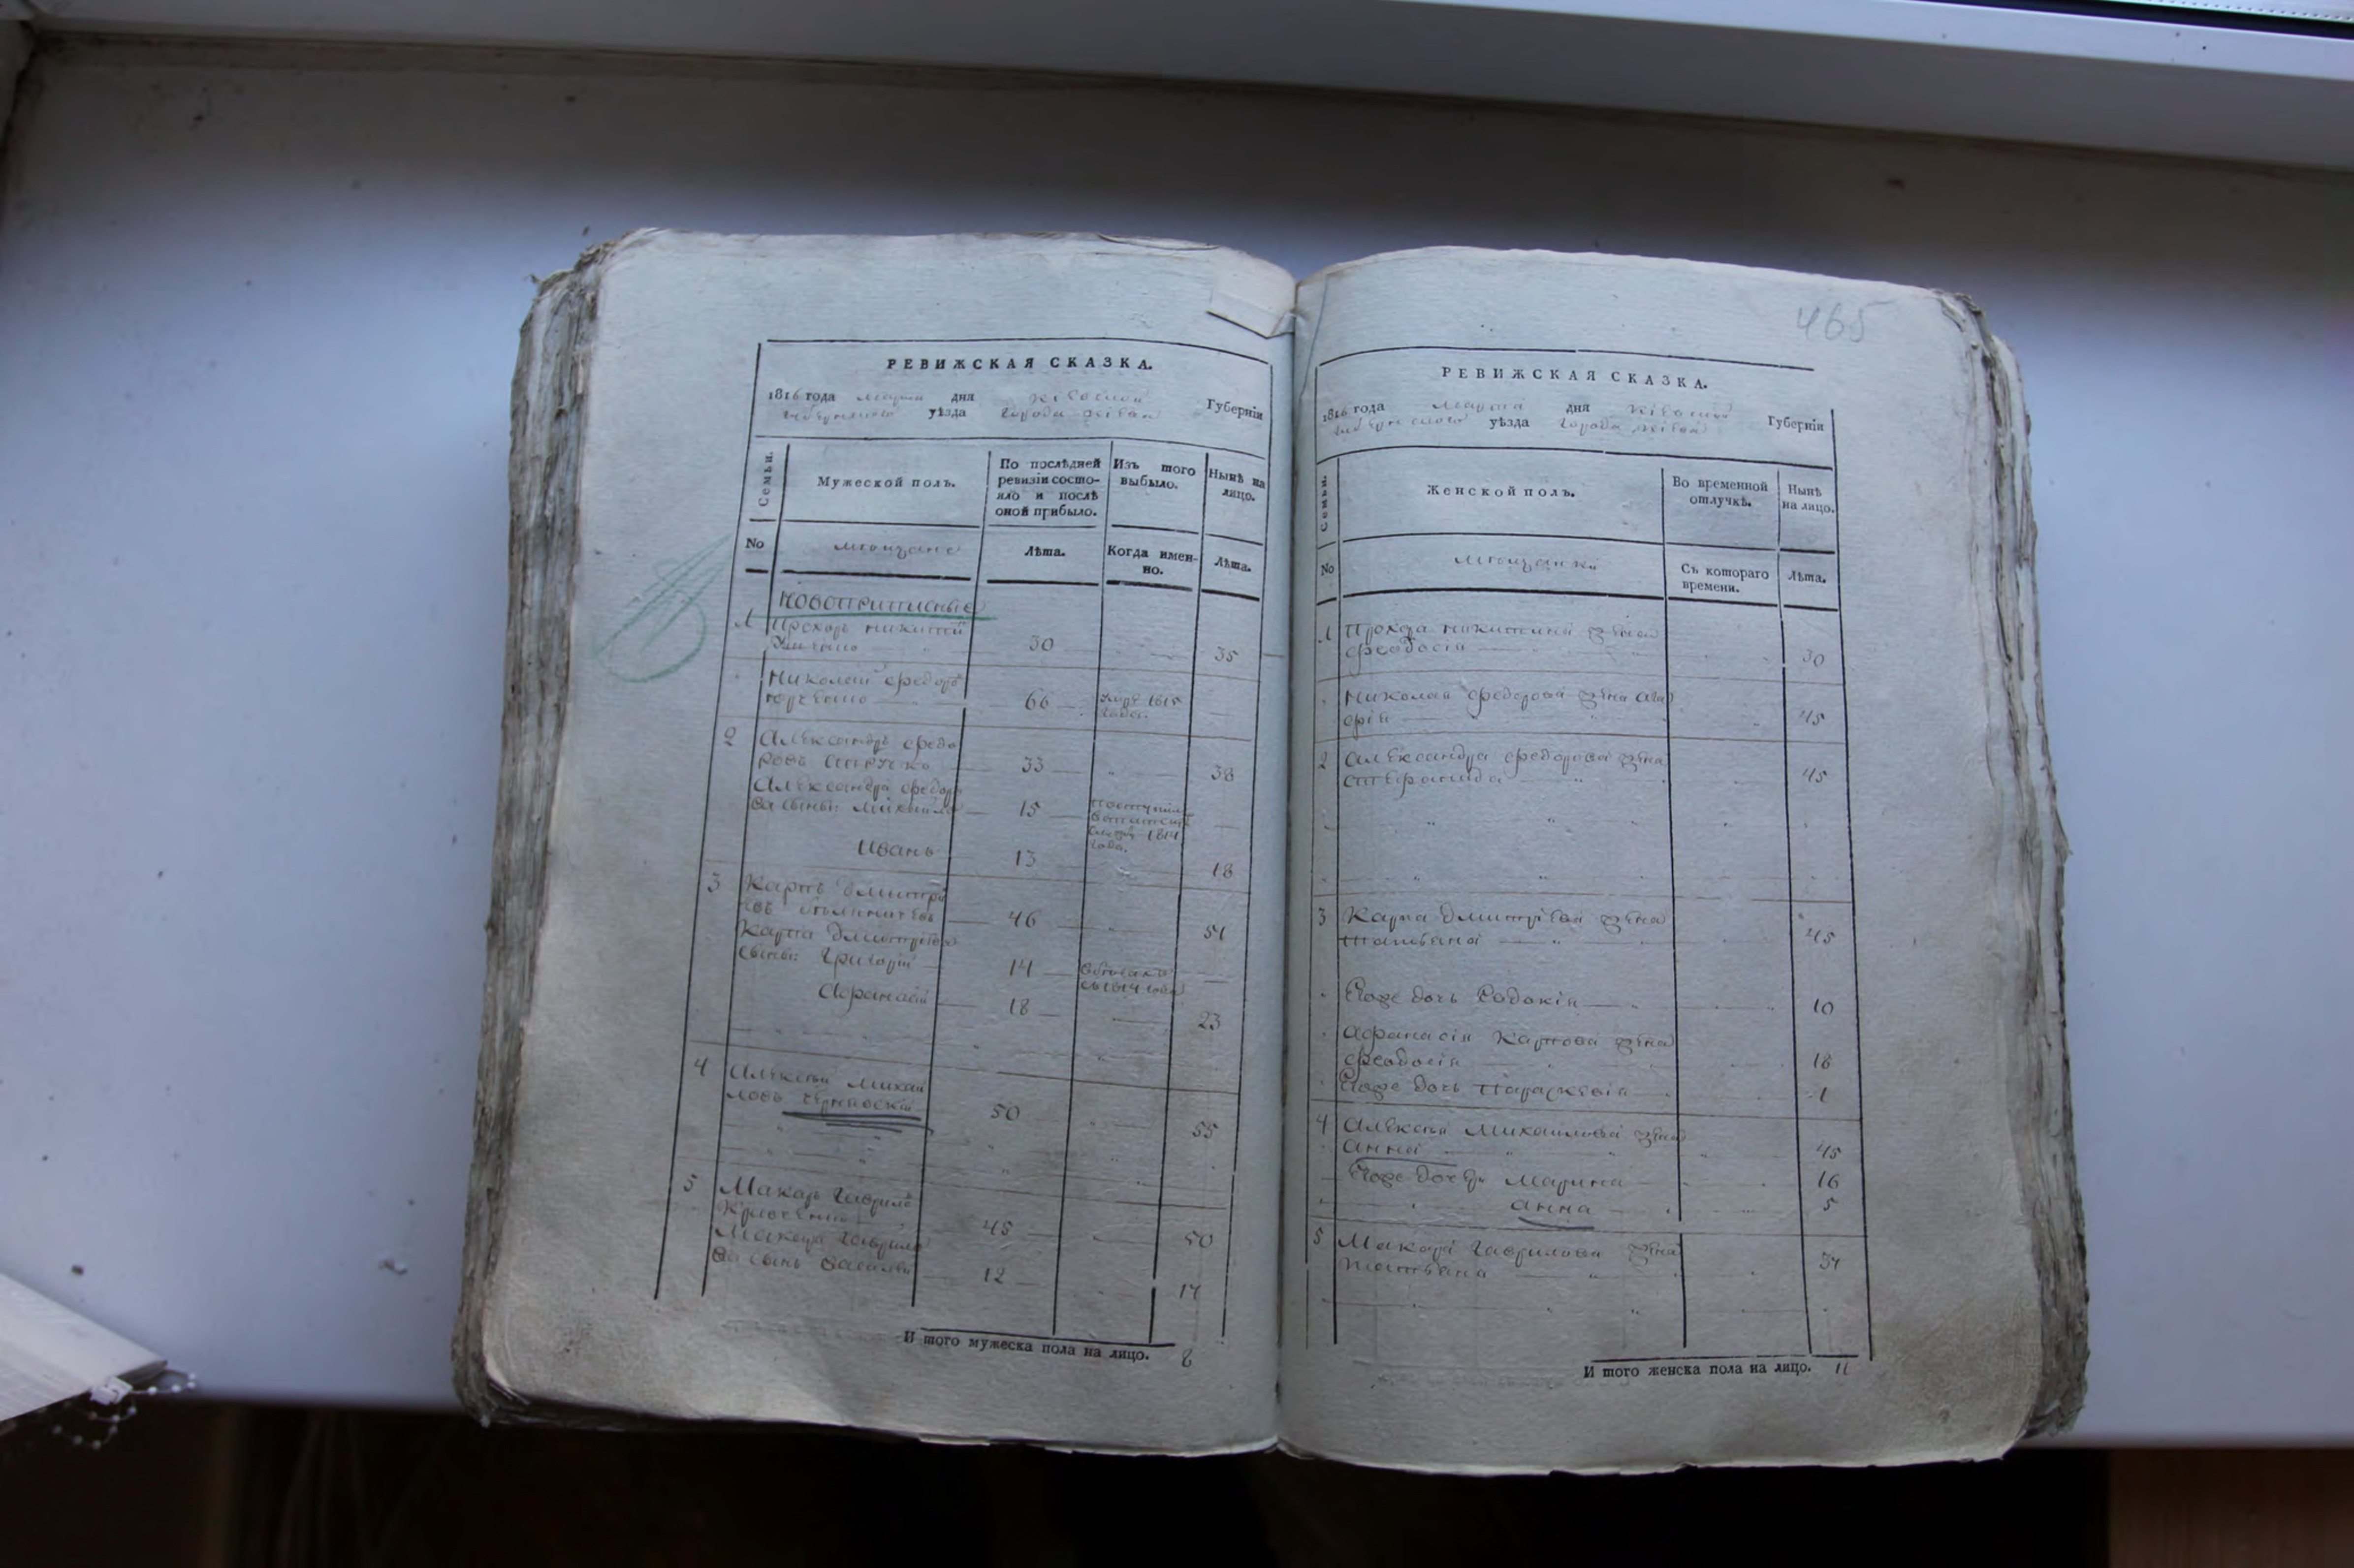 465
РЕВИЖСКАЯ СКАЗКА.
1816 года марта дня Кіевской Губерніи
уѣзда города Кіева
Семьи.
Мужеской полъ.
По послѣдней ревизіи состояло и послѣ оной прибыло.
Изъ того выбыло.
Нынѣ на лицо.
No
мѣщане
Лѣта.
Когда именно.
Лѣта.
Новоприписные
1 Прохоръ Никитин
30 35
Николай Федоръ
66 умре 1815 года.
2 Александръ Федо
ровъ 33 38
Александра Федоро
ва сынъ: Михайло 15 1814 года.
Иванъ 13 18
3 Карпъ Дмитрі
евъ 46 51
Карпа Дмитріева
сыны: Григорій 14
Афанасій 18 23
4 Алексѣй Михай
ловъ 50 55
5 Макаръ Гаврило
45 50
Макара Гаврило
ва сынъ Василій 12 17
И того мужеска пола на лицо. 8
РЕВИЖСКАЯ СКАЗКА.
1816 года марта дня Кіевской Губерніи
уѣзда города Кіева
Семьи.
Женской полъ.
Во временной отлучкѣ.
Нынѣ на лицо.
No
мѣщанки
Съ котораго времени.
Лѣта.
1 Прохора Никитина жена
Феодосія 30
Николая Федорова жена
45
2 Александра Федорова жена
45
3 Карпа Дмитріева жена
Татьяна 45
Егоже дочь Евдокія 10
Афанасія Карпова жена
Феодосія 18
Егоже дочь Параскевія 1
4 Алексѣя Михайлова жена
Анна 45
Егоже дочери Марина 16
Анна 5
5 Макара Гаврилова жена
Татьяна 37
И того женска пола на лицо. 11